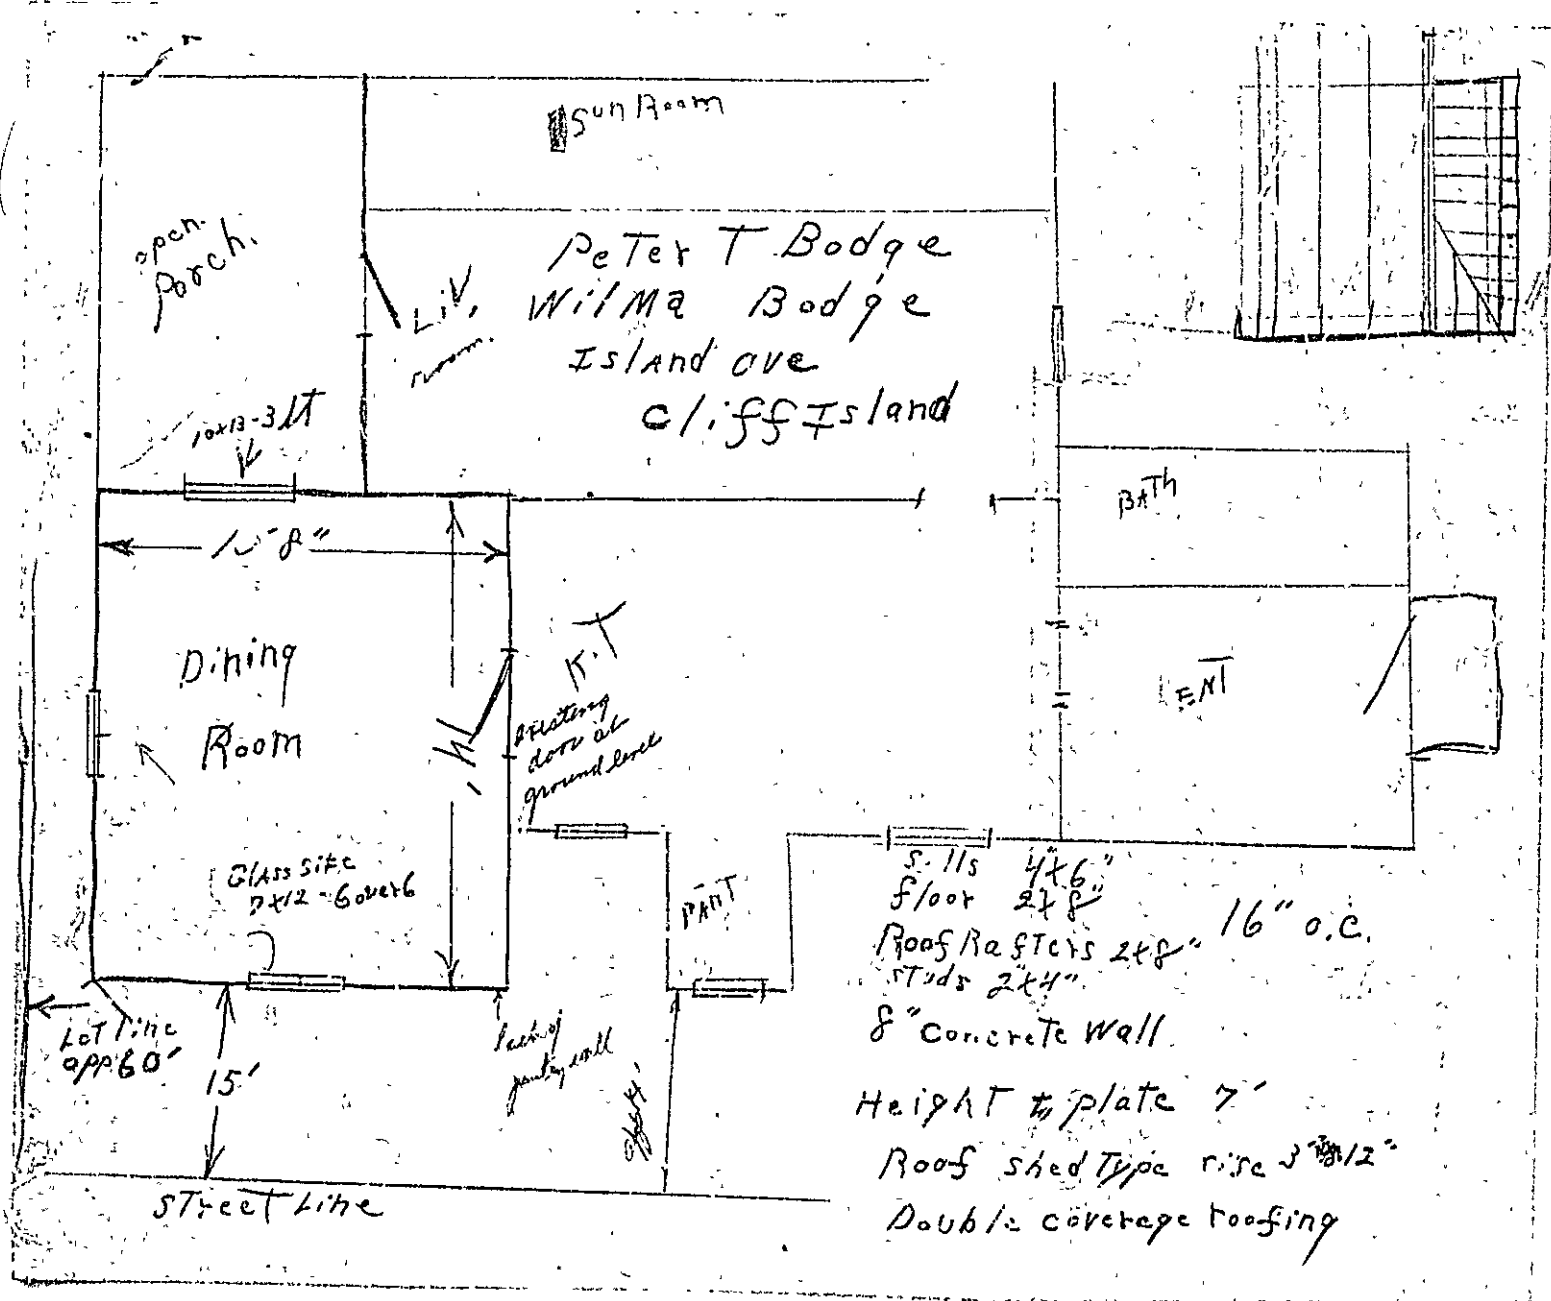 Sun Room
open.
Porch.
Peter T Bodge
Wilma Bodge
Island ave
Cliff Island
Liv.
room.
10x13-3 lt
BATh
8"
Dining
Room
K.T
Existing
door at
ground level
ENT
Glass Size
7x12-6 over 6
PANT
Sills 4x6"
floor 2x8"
Roof Rafters 2x8" 16" o.c.
STuds 2"x4"
8" Concrete Wall
Height to plate 7'
Roof shed Type rise 3" 12"
Double coverage roofing
LoT Line
app 60'
15'
pantry wall
STreet Line